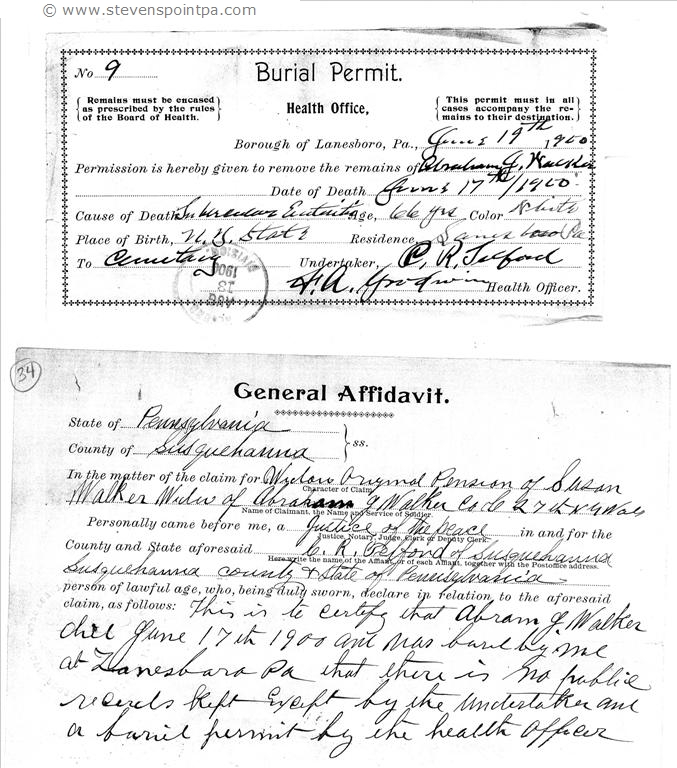 © www.stevenspointpa.com
No 9
Burial Permit.
{ Remains must be encased as prescribed by the rules of the Board of Health. }
Health Office,
{ This permit must in all cases accompany the remains to their destination. }
Borough of Lanesboro, Pa., June 19th, 1900
Permission is hereby given to remove the remains of Abraham J. Walker
Date of Death June 17th/1900
Cause of Death, Age, 66 yrs Color White
Place of Birth, N.Y. State Residence, Lanesboro Pa
To Cemetary Undertaker, C. R. Telford
F. A. Goodwin Health Officer.
AUG 13 1900
34
General Affidavit.
State of Pennsylvania
County of Susquehanna } ss.
In the matter of the claim for Widow Original Pension of Susan
Character of Claim
Walker Widw of Abraham J Walker Co 27th N Y
Name of Claimant, the Name and Service of Soldier.
Personally came before me, a Justice of the peace in and for the
Justice, Notary, Judge, Clerk or Deputy Clerk.
County and State aforesaid C. R. Telford of Susquehanna
Here write the name of the Affiant, or of each Affiant, together with the Postoffice address.
Susquehanna county & State of Pennsylvania
person of lawful age, who, being duly sworn, declare in relation to the aforesaid
claim, as follows: This is to certify that Abram J Walker
died June 17th 1900 and was buried by me
at Lanesboro Pa that there is no public
records kept Except by the undertaker and
a buriel permit by the health officer